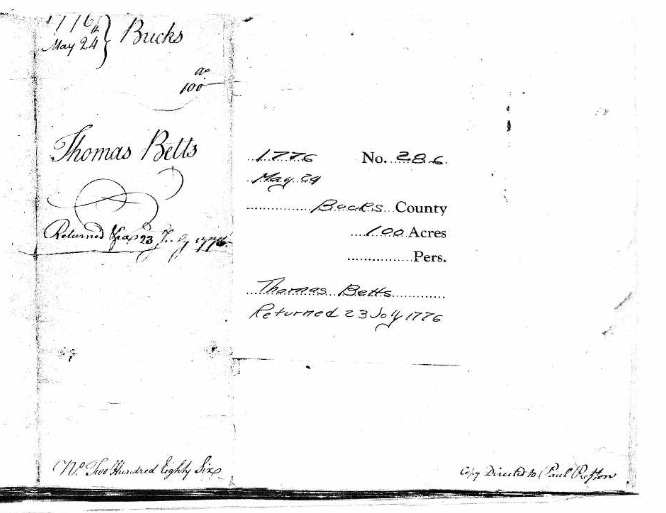 1776
May 24th } Bucks
as
100
Thomas Betts
Returned 23 July 1776
No. Two Hundred Eighty Six
1776 No. 286
May 24
Bucks County
100 Acres
Pers.
Thomas Betts
Returned 23 July 1776
Copy Directed to Paul Preston